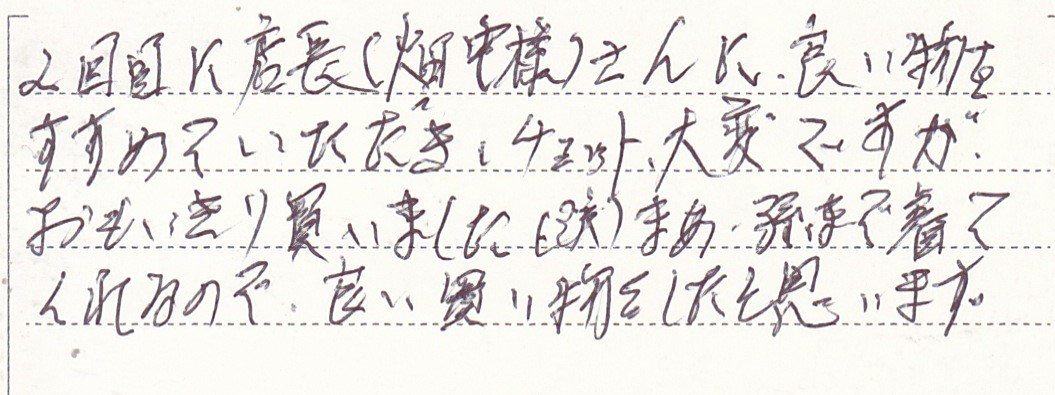 2回目に店長(畑中様)さんに、良い物を
すすめていただき、チョット、大変ですが、
おもいきり買いました(笑)まあ、孫まで着て
くれるので、良い買い物をしたと思っいます。